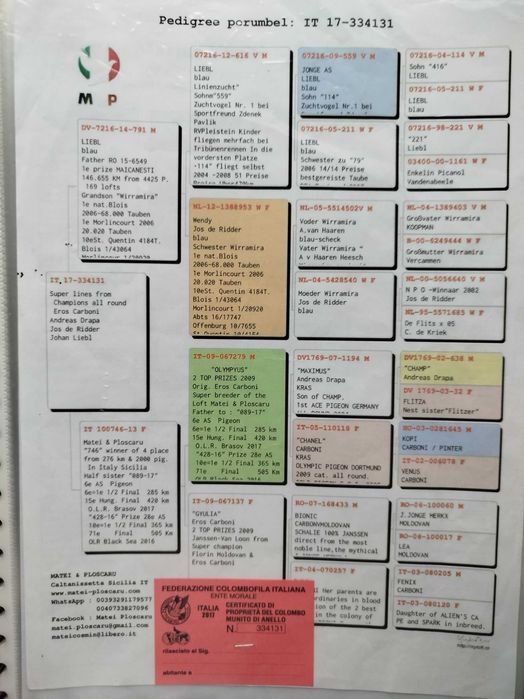 Pedigree porumbel: IT 17-334131
M P
DV-7216-14-791 M
LIEBL
blau
Father RO 15-6549
1e prize MAICANESTI
146.655 KM from 4425 P.
169 lofts
Grandson "Wirramira"
1e nat.Blois
2006-68.000 Tauben
1e Morlincourt 2006
20.020 Tauben
10eSt. Quentin 4184T.
Blois 1/43064
IT 17-334131
Super lines from
Champions all round
Eros Carboni
Andreas Drapa
Jos de Ridder
Johan Liebl
IT 100746-13 F
Matei & Ploscaru
"746" winner of 4 place
from 276 km & 2000 pig.
In Italy Sicilia
Half sister "089-17"
6e AS Pigeon
6e=1e 1/2 Final 285 km
15e Hung. Final 420 km
O.L.R. Brasov 2017
"428-16" Prize 28e AS
10e=1e 1/2 Final 365 km
71e Final 505 km
OLR Black Sea 2016
07216-12-616 V M
LIEBL
blau
Linienzucht"
Sohne"559"
Zuchtvogel Nr. 1 bei
Sportfreund Zdenek
Pavlik
RVPleistein Kinder
fliegen mehrfach bei
Tribünenrennen In die
vordersten Platze
-114" fliegt selbst
2004 -2008 51 Preise
NL-12-1388953 W F
Wendy
Jos de Ridder
blau
Schwester Wirramira
1e nat.Blois
2006-68.000 Tauben
1e Morlincourt 2006
20.020 Tauben
10eSt. Quentin 4184T.
Blois 1/43064
Morlincourt 1/20920
Abts 16/17747
Offenburg 10/7655
IT-09-067279 M
"OLYMPYUS"
2 TOP PRIZES 2009
Orig. Eros Carboni
Super breeder of the
Loft Matei & Ploscaru
Father to : "089-17"
6e AS Pigeon
6e=1e 1/2 Final 285 km
15e Hung. Final 420 km
O.L.R. Brasov 2017
"428-16" Prize 28e AS
10e=1e 1/2 Final 365 km
71e Final 505 km
IT-09-067137 F
"GYULIA"
Eros Carboni
2 TOP PRIZES 2009
Janssen-Van Loon from
Super champion
Florin Moldovan &
Eros Carboni
07216-09-559 V M
JONGE AS
LIEBL
blau
Sohn "114"
Zuchtvogel Nr.1 bei
07216-05-211 W F
LIEBL
blau
Schwester zu "79"
2006 14/14 Preise
bestgereiste Taube
NL-05-5514502V M
Voder Wirramira
A.van Haaren
blau-scheck
Vater Wirramira "
A v Haaren Heesch
NL-04-5428540 W F
Moeder Wirramira
Jos de Ridder
blau
DV1769-07-1194 M
"MAXIMUS"
Andreas Drapa
KRAS
Son of CHAMP.
1st ACE PIGEON GERMANY
IT-05-110118 F
"CHANEL"
CARBONI
KRAS
OLYMPIC PIGEON DORTMUND
2009 cat. all round.
RO-07-168433 M
BIONIC
CARBONVMOLDOVAN
SCHALIE 100% JANSSEN
direct from the most
noble line,the mythical
IT-04-070257 F
Her parents are
ordinaries in blood
ion of the 2 best
in the colony of
07216-04-114 V M
Sohn "416"
LIEBL
07216-05-211 W F
LIEBL
blau
07216-98-221 V M
"221"
Liebl
03400-00-1161 W F
Enkelin Picanol
Vandenabeele
NL-04-1389403 V M
Großvater Wirramira
KOOPMAN
B-00-6249444 W F
Großmutter Wirramira
Vercammen
NL-00-5056640 V M
N P O -Winnaar 2002
Jos de Ridder
NL-95-5571685 W F
De Flits x 05
C. de Kriek
DV1769-02-638 M
"CHAMP"
Andreas Drapa
DV 1769-03-32 F
FLITZA
Nest sister"Flitzer"
RO-03-0281645 M
KOPI
CARBONI / PINTER
IT-02-004078 F
VENUS
CARBONI
RO-06-100060 M
J.JONGE MERKX
MOLDOVAN
RO-06-100017 F
LEA
MOLDOVAN
IT-03-080205 M
FENIX
CARBONI
IT-03-080120 F
Daughter of ALIEN'S CA
PE and SPARK in inbreed.
MATEI & PLOSCARU
Caltanissetta Sicilia IT
www.matei-ploscaru.com
WhatsApp : 00393291179577
0040733827096
Facebook : Matei Ploscaru
matei-ploscaru@gmail.com
mateicosmin@libero.it
FEDERAZIONE COLOMBOFILA ITALIANA
ENTE MORALE
ITALIA
2017
CERTIFICATO DI
PROPRIETÀ DEL COLOMBO
MUNITO DI ANELLO
N. 334131
rilasciato al Sig.
abitante a